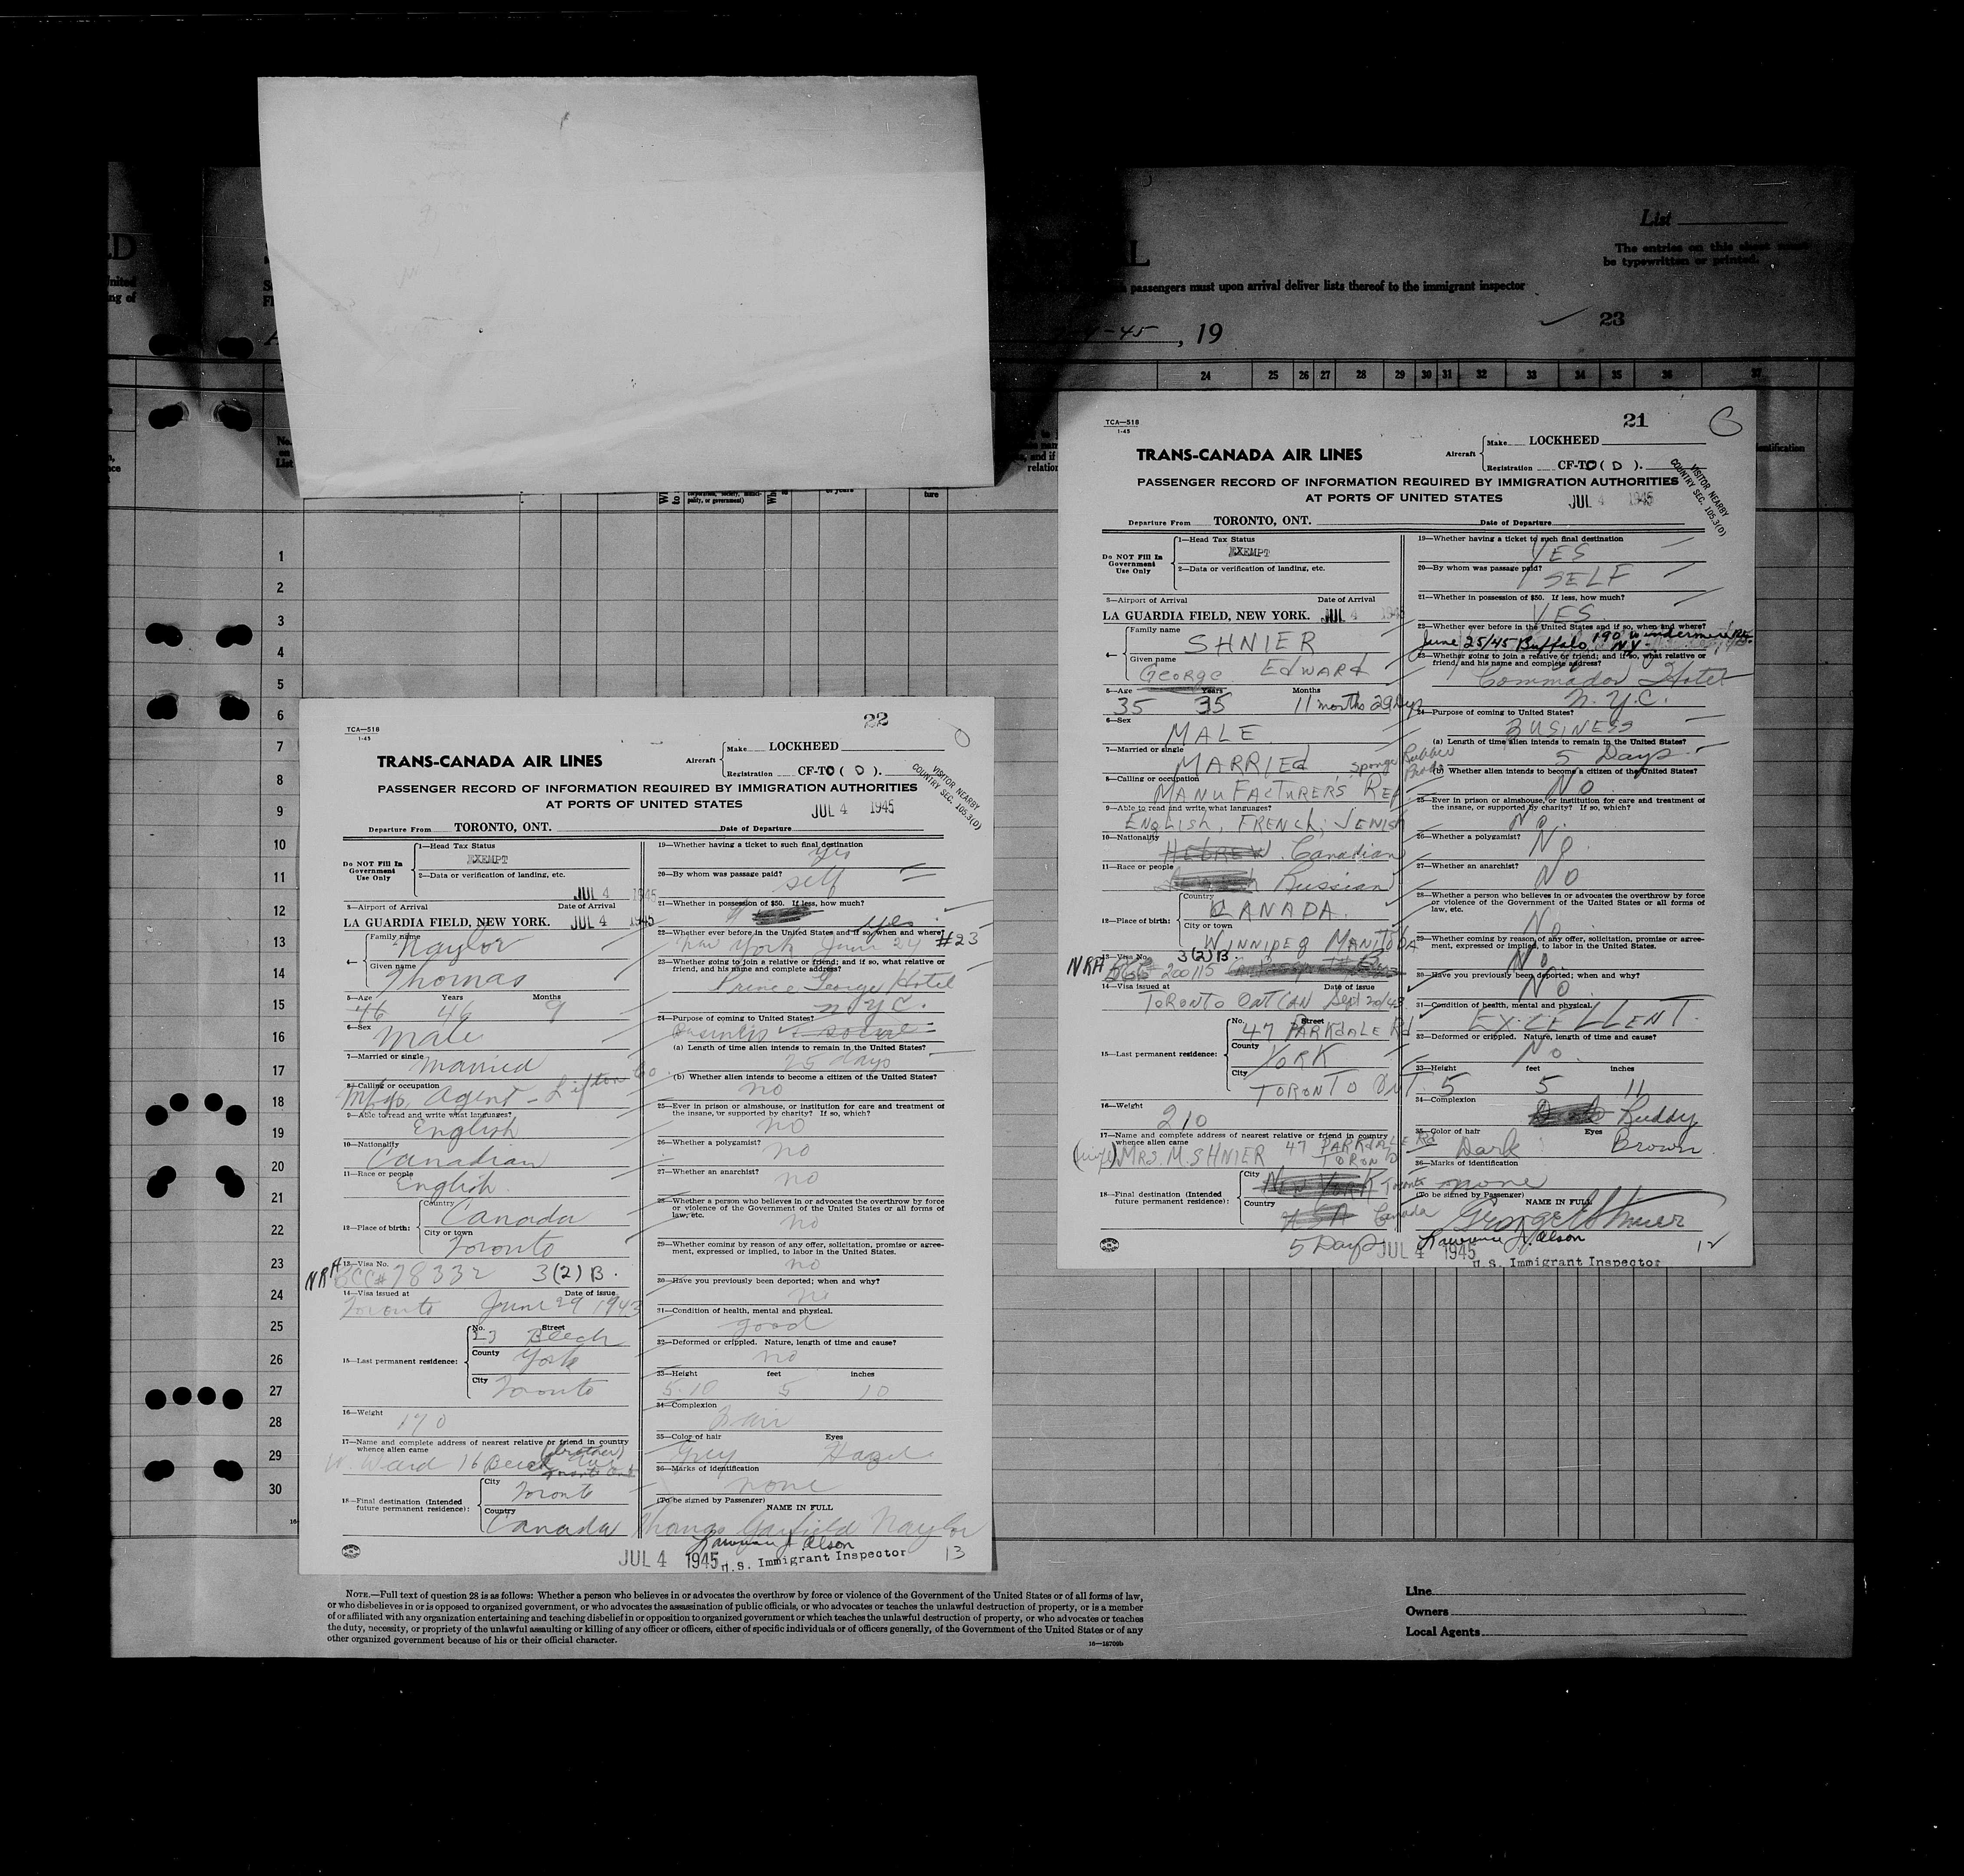 ED
United
ing of
AL
List
The entries on this sheet must
be typewritten or printed.
passengers must upon arrival deliver lists thereof to the immigrant inspector
-45, 19
23
24 25 26 27 28 29 30 31 32 33 34 35 36 37
1
2
3
4
5
6
7
8
9
10
11
12
13
14
15
16
17
18
19
20
21
22
23
24
25
26
27
28
29
30
TCA—518
1-45
22
TRANS-CANADA AIR LINES
Aircraft
Make LOCKHEED
Registration CF-TC ( D ).
PASSENGER RECORD OF INFORMATION REQUIRED BY IMMIGRATION AUTHORITIES
AT PORTS OF UNITED STATES
JUL 4 1945
VISITOR NEARBY
COUNTRY SEC. 105.3(D)
Departure From TORONTO, ONT. Date of Departure
Do NOT Fill In
Government
Use Only
1—Head Tax Status
EXEMPT
2—Data or verification of landing, etc.
JUL 4 1945
3—Airport of Arrival Date of Arrival
LA GUARDIA FIELD, NEW YORK. JUL 4 1945
4—
Family name
Naylor
Given name
Thomas
5—Age Years Months
46 46 9
6—Sex
Male
7—Married or single
Married
8—Calling or occupation
Mfgs. Agent - Lifton Co.
9—Able to read and write what languages?
English
10—Nationality
Canadian
11—Race or people
English
12—Place of birth:
Country
Canada
City or town
Toronto
13—Visa No.
NRA BCC# 78332 3(2)B.
14—Visa issued at Date of issue
Toronto June 29 1943
15—Last permanent residence:
No. Street
23 Beech
County
York
City
Toronto
16—Weight
170
17—Name and complete address of nearest relative or friend in country
whence alien came
(brother)
W. Ward 16 Beech Ave
Toronto Ont
18—Final destination (Intended
future permanent residence):
City
Toronto
Country
Canada
19—Whether having a ticket to such final destination
yes
20—By whom was passage paid?
self
21—Whether in possession of $50. If less, how much?
yes
22—Whether ever before in the United States and if so, when and where?
New York June 24 #23
23—Whether going to join a relative or friend; and if so, what relative or
friend, and his name and complete address?
Prince George Hotel
N.Y.C.
24—Purpose of coming to United States?
Business & social
(a) Length of time alien intends to remain in the United States?
25 days
(b) Whether alien intends to become a citizen of the United States?
no
25—Ever in prison or almshouse, or institution for care and treatment of
the insane, or supported by charity? If so, which?
no
26—Whether a polygamist?
no
27—Whether an anarchist?
no
28—Whether a person who believes in or advocates the overthrow by force
or violence of the Government of the United States or all forms of
law, etc.
no
29—Whether coming by reason of any offer, solicitation, promise or agree-
ment, expressed or implied, to labor in the United States.
no
30—Have you previously been deported; when and why?
no
31—Condition of health, mental and physical.
good
32—Deformed or crippled. Nature, length of time and cause?
no
33—Height feet inches
5-10 5 10
34—Complexion
Fair
35—Color of hair Eyes
Grey Hazel
36—Marks of identification
none
(To be signed by Passenger)
NAME IN FULL
Thomas Garfield Naylor
JUL 4 1945
U.S. Immigrant Inspector
13
TCA—518
1-45
21
C
TRANS-CANADA AIR LINES
Aircraft
Make LOCKHEED
Registration CF-TC ( D ).
PASSENGER RECORD OF INFORMATION REQUIRED BY IMMIGRATION AUTHORITIES
AT PORTS OF UNITED STATES
JUL 4 1945
VISITOR NEARBY
COUNTRY SEC. 105.3(D)
Departure From TORONTO, ONT. Date of Departure
Do NOT Fill In
Government
Use Only
1—Head Tax Status
EXEMPT
2—Data or verification of landing, etc.
3—Airport of Arrival Date of Arrival
LA GUARDIA FIELD, NEW YORK. JUL 4 1945
4—
Family name
SHNIER
Given name
George Edward
5—Age Years Months
35 35 11 months 29 Days
6—Sex
MALE
7—Married or single
MARRIEd
8—Calling or occupation
MANUFACTURERS REP
Sponge Rubber
Prods
9—Able to read and write what languages?
ENGLISH, FRENCH, JEWISH
10—Nationality
HEBREW Canadian
11—Race or people
Russian
12—Place of birth:
Country
CANADA
City or town
WINNIPEG MANITOBA
13—Visa No. 3(2)B.
NRA 200115
14—Visa issued at Date of issue
TORONTO ONT CAN Sept 20/43
15—Last permanent residence:
No. Street
47 PARKdALE Rd
County
YORK
City
TORONTO ONT.
16—Weight
210
17—Name and complete address of nearest relative or friend in country
whence alien came
(wife) MRS. M. SHNIER 47 PARKdALE Rd
TORONTO
18—Final destination (Intended
future permanent residence):
City
NEW YORK Toronto
Country
USA Canada
5 Days JUL 4 1945
19—Whether having a ticket to such final destination
YES
20—By whom was passage paid?
SELF
21—Whether in possession of $50. If less, how much?
YES
22—Whether ever before in the United States and if so, when and where?
June 25/45 Buffalo, N.Y. 190 Windermere Rd.
23—Whether going to join a relative or friend; and if so, what relative or
friend, and his name and complete address?
Commador Hotel
N.Y.C.
24—Purpose of coming to United States?
BUSINESS
(a) Length of time alien intends to remain in the United States?
5 Days
(b) Whether alien intends to become a citizen of the United States?
NO
25—Ever in prison or almshouse, or institution for care and treatment of
the insane, or supported by charity? If so, which?
NO.
26—Whether a polygamist?
NO.
27—Whether an anarchist?
NO
28—Whether a person who believes in or advocates the overthrow by force
or violence of the Government of the United States or all forms of
law, etc.
NO
29—Whether coming by reason of any offer, solicitation, promise or agree-
ment, expressed or implied, to labor in the United States.
NO.
30—Have you previously been deported; when and why?
NO
31—Condition of health, mental and physical.
EXCELLENT.
32—Deformed or crippled. Nature, length of time and cause?
NO.
33—Height feet inches
5 5 11
34—Complexion
Ruddy
35—Color of hair Eyes
Dark Brown
36—Marks of identification
none
(To be signed by Passenger)
NAME IN FULL
George E Shnier
U.S. Immigrant Inspector
12
NOTE.—Full text of question 28 is as follows: Whether a person who believes in or advocates the overthrow by force or violence of the Government of the United States or of all forms of law,
or who disbelieves in or is opposed to organized government, or who advocates the assassination of public officials, or who advocates or teaches the unlawful destruction of property, or is a member
of or affiliated with any organization entertaining and teaching disbelief in or opposition to organized government or which teaches the unlawful destruction of property, or who advocates or teaches
the duty, necessity, or propriety of the unlawful assaulting or killing of any officer or officers, either of specific individuals or of officers generally, of the Government of the United States or of any
other organized government because of his or their official character.
16—18709b
Line
Owners
Local Agents